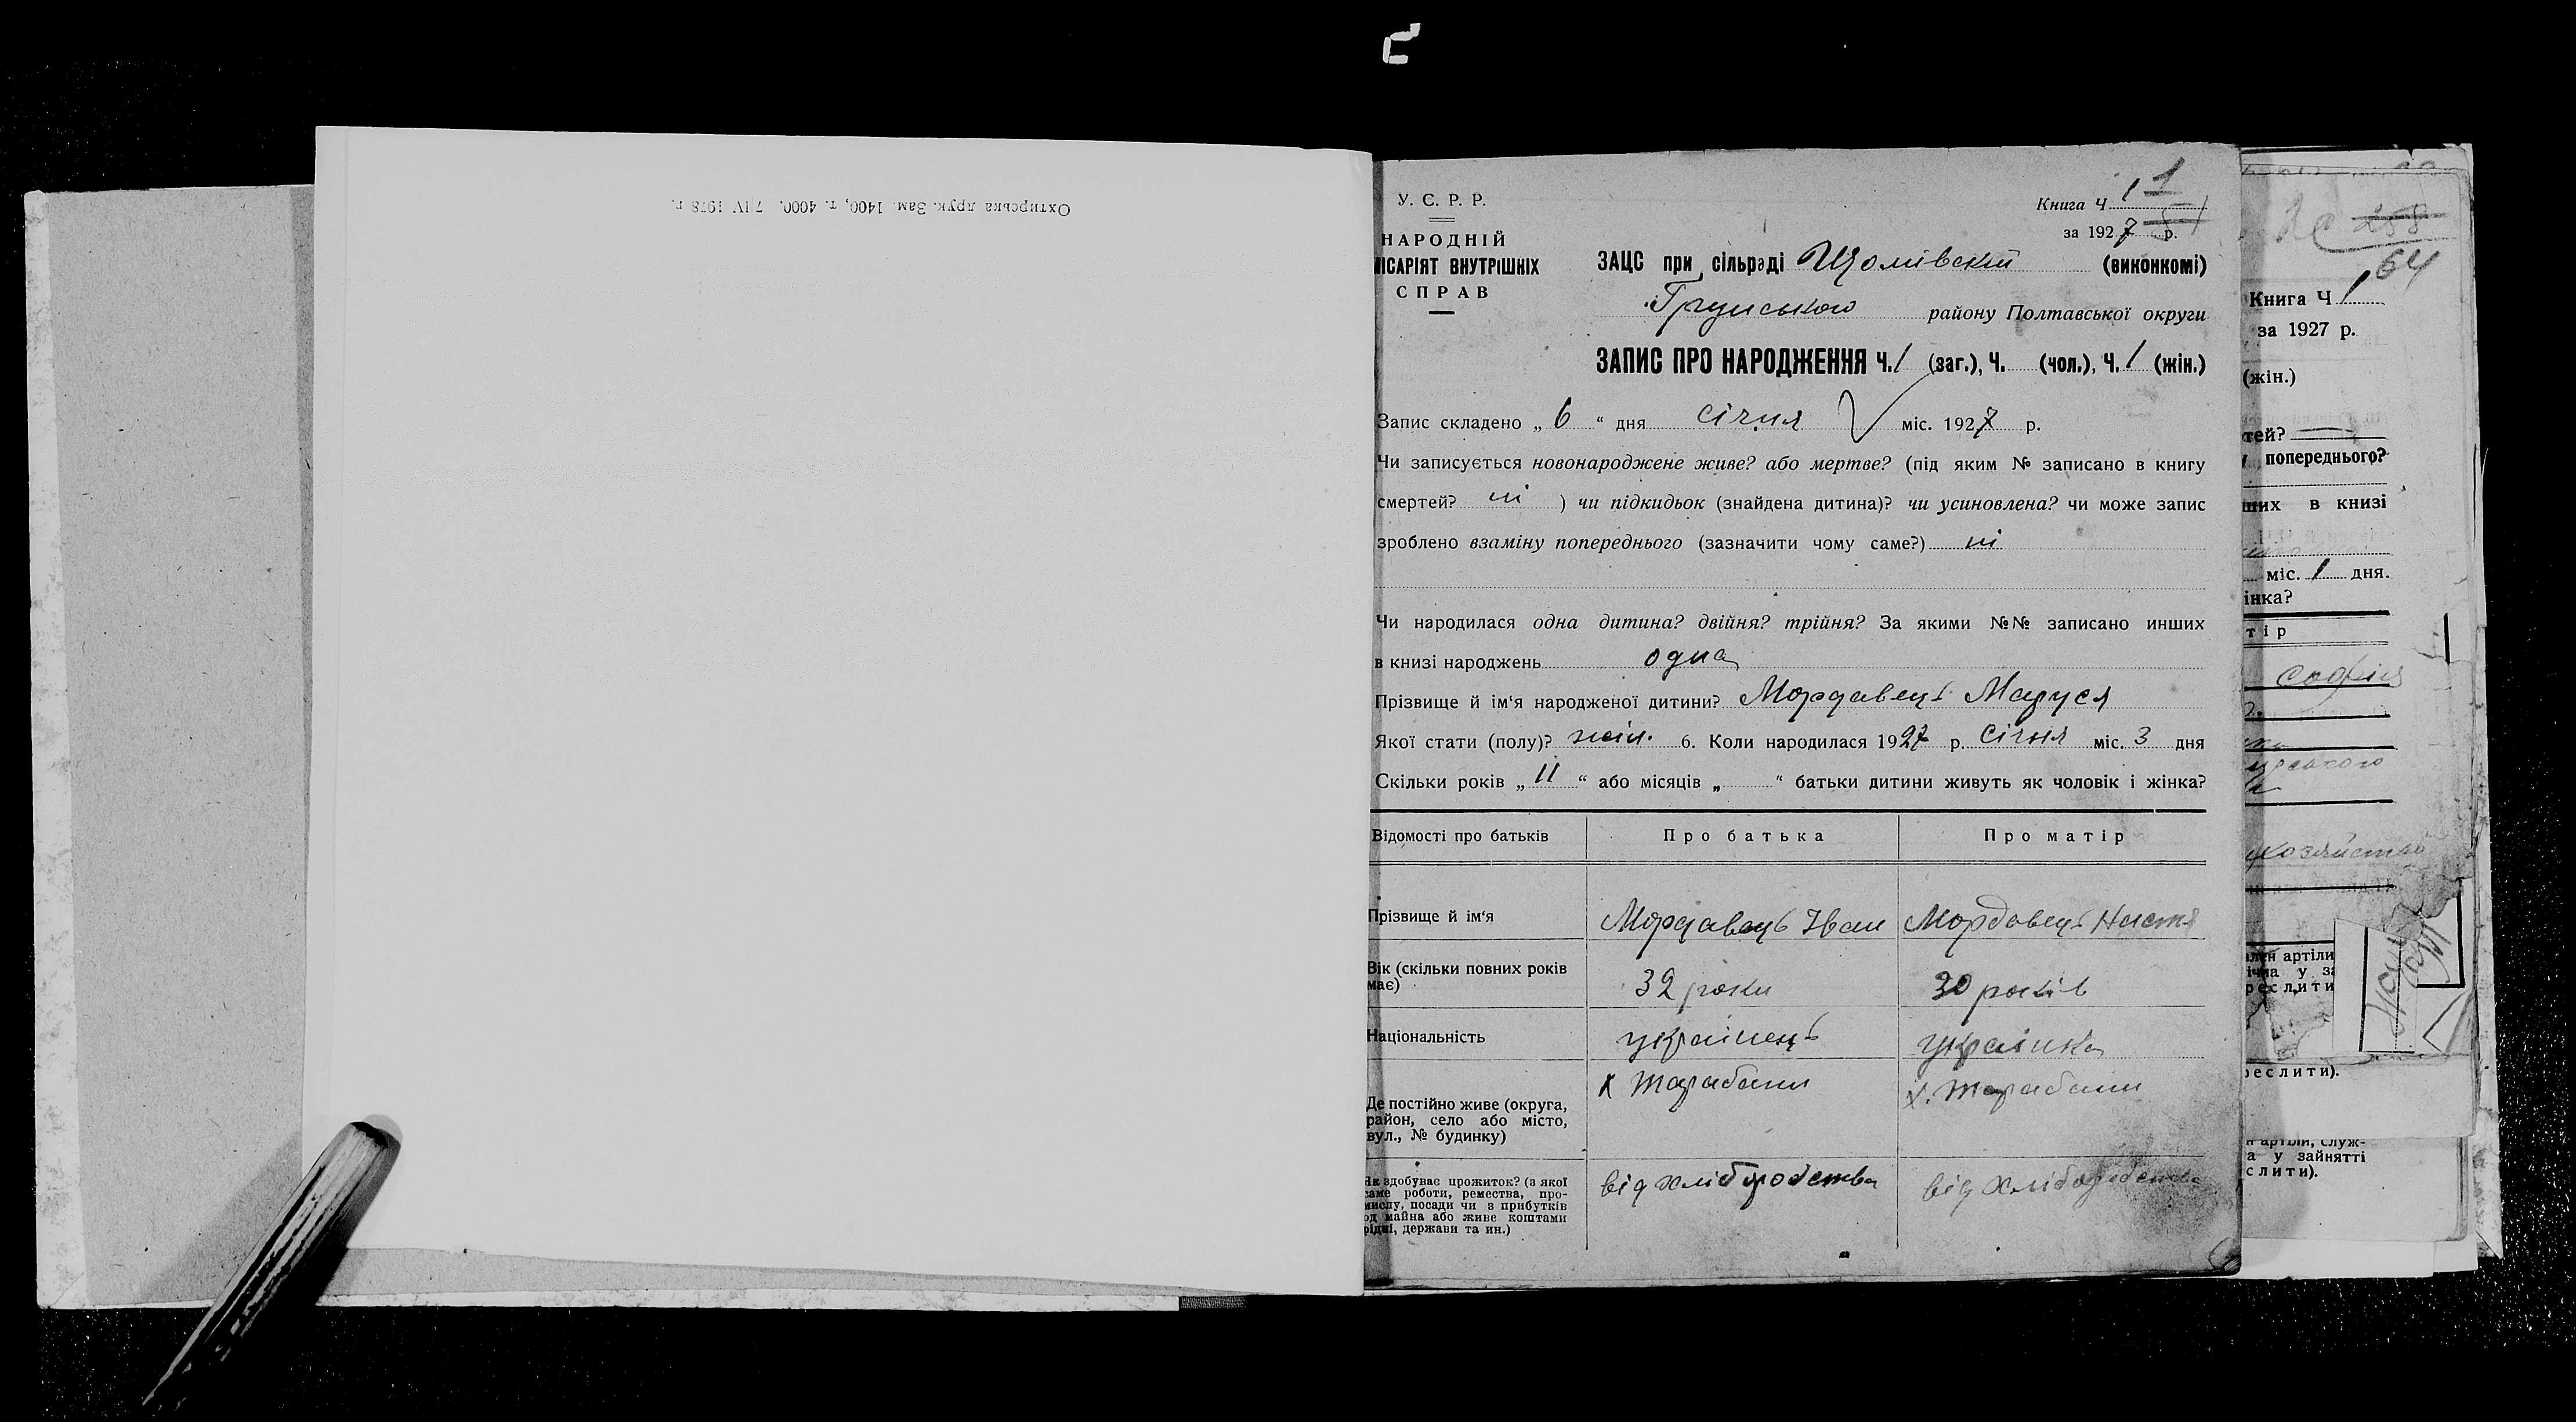 Охтирська друк. Зам. 1400, т. 4000. 7 IV 1978 г.
У. С. Р. Р.
НАРОДНІЙ
ІСАРІЯТ ВНУТРІШНІХ
СПРАВ
Книга Ч 1 1
за 1927 р.
ЗАЦС при сільраді (виконкомі)
Грунського району Полтавської округи
ЗАПИС ПРО НАРОДЖЕННЯ Ч. 1 (заг.), Ч. (чол.), Ч. 1 (жін.)
Запис складено „ 6 “ дня січня міс. 1927 р.
Чи записується новонароджене живе? або мертве? (під яким № записано в книгу
смертей? ні ) чи підкидьок (знайдена дитина)? чи усиновлена? чи може запис
зроблено взаміну попереднього (зазначити чому саме?) ні
Чи народилася одна дитина? двійня? трійня? За якими №№ записано инших
в книзі народжень одна
Прізвище й ім‘я народженої дитини? Мордавець Маруся
Якої стати (полу)? жін. 6. Коли народилася 1927 р. Січня міс. 3 дня
Скільки років „ 11 “ або місяців „ “ батьки дитини живуть як чоловік і жінка?
Відомості про батьків Про батька Про матір
Прізвище й ім‘я Мордавець Іван Мордовець Настя
Вік (скільки повних років має) 32 роки 30 років
Національність українець українка
Де постійно живе (округа, район, село або місто, вул., № будинку) х Тарабани х. Тарабани
Як здобуває прожиток? (з якої
саме роботи, ремества, про-
мислу, посади чи з прибутків
од майна або живе коштами
рідні, держави та ин.) від хліборобства від хліборобства
258
64
Книга Ч 1
за 1927 р.
(жін.)
тей?
попереднього?
ших в книзі
міс. 1 дня.
інка?
тір
Софія
хозяйство
лен артіли
ічна у за
реслити
реслити).
н артіли, служ-
а у зайнятті
слити).